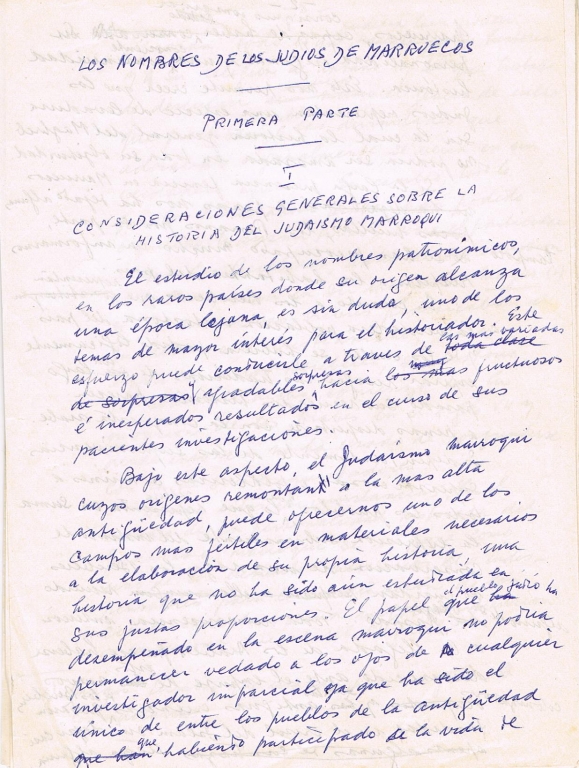 LOS NOMBRES DE LOS JUDIOS DE MARRUECOS
PRIMERA PARTE
I
CONSIDERACIONES GENERALES SOBRE LA
HISTORIA DEL JUDAISMO MARROQUI
El estudio de los nombres patronímicos,
en los raros países donde su origen alcanza
una época lejana, es sin duda, uno de los
temas de mayor interés para el historiador. Este
esfuerzo puede conducirle a traves de las mas variadas toda clase
de sorpresas y agradables sorpresas hacia los mas fructuosos
é inesperados resultados en el curso de sus
pacientes investigaciones.
Bajo este aspecto, el Judaismo marroqui
cuyos origenes remontan a la mas alta
antigüedad, puede ofrecernos uno de los
campos mas fértiles en materiales necesarios
a la elaboración de su propia historia, una
historia que no ha sido aún estudiada en
sus justas proporciones. El papel que el pueblo judio ha
desempeñado en la escena marroqui no podria
permanecer vedado a los ojos de cualquier
investigador imparcial ya que ha sido el
único de entre los pueblos de la antigüedad
que han que, habiendo participado de la vida de